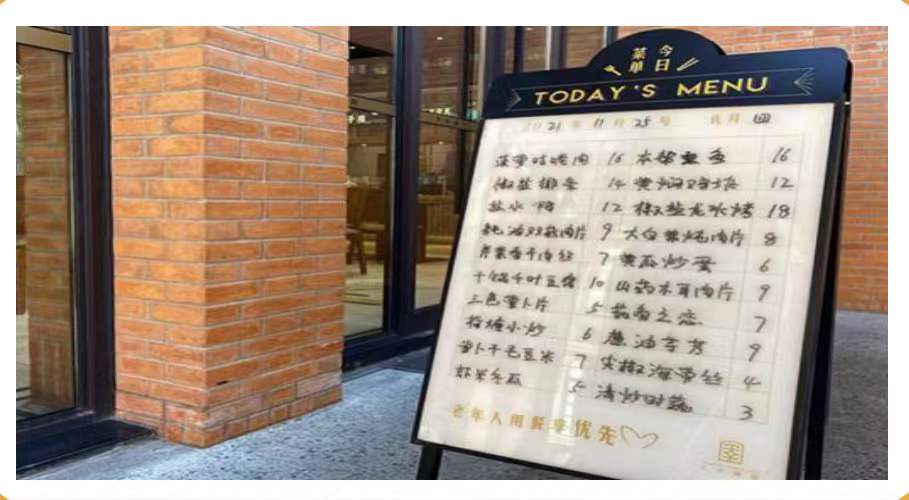 今日
菜單
TODAY'S MENU
2021年11月25号 星期四
菠萝咕咾肉 16 本帮熏鱼 16
椒盐排条 14 黄焖鸡块 12
盐水鸭 12 椒盐龙头烤 18
蚝油双菇肉片 9 大白菜炖肉片 8
芹菜香干肉丝 7 黄瓜炒蛋 6
干锅千叶豆腐 10 山药木耳肉片 9
三色萝卜片 5 茄香之恋 7
荷塘小炒 6 葱油芋艿 9
萝卜干毛豆米 7 尖椒海带丝 4
虾米冬瓜 5 清炒时蔬 3
老年人用餐 优先